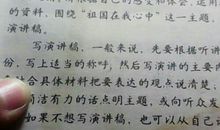 的资料，围绕“祖国在我心中”这一主题
演讲稿。
写演讲稿，一般来说，先要根据听讲
份，写上适当的称呼，然后写演讲的主要内
结合具体材料把要表达的观点说清楚；
简洁有力的话点明主题，或向听众发
如果不想写演讲稿，也可以从自己